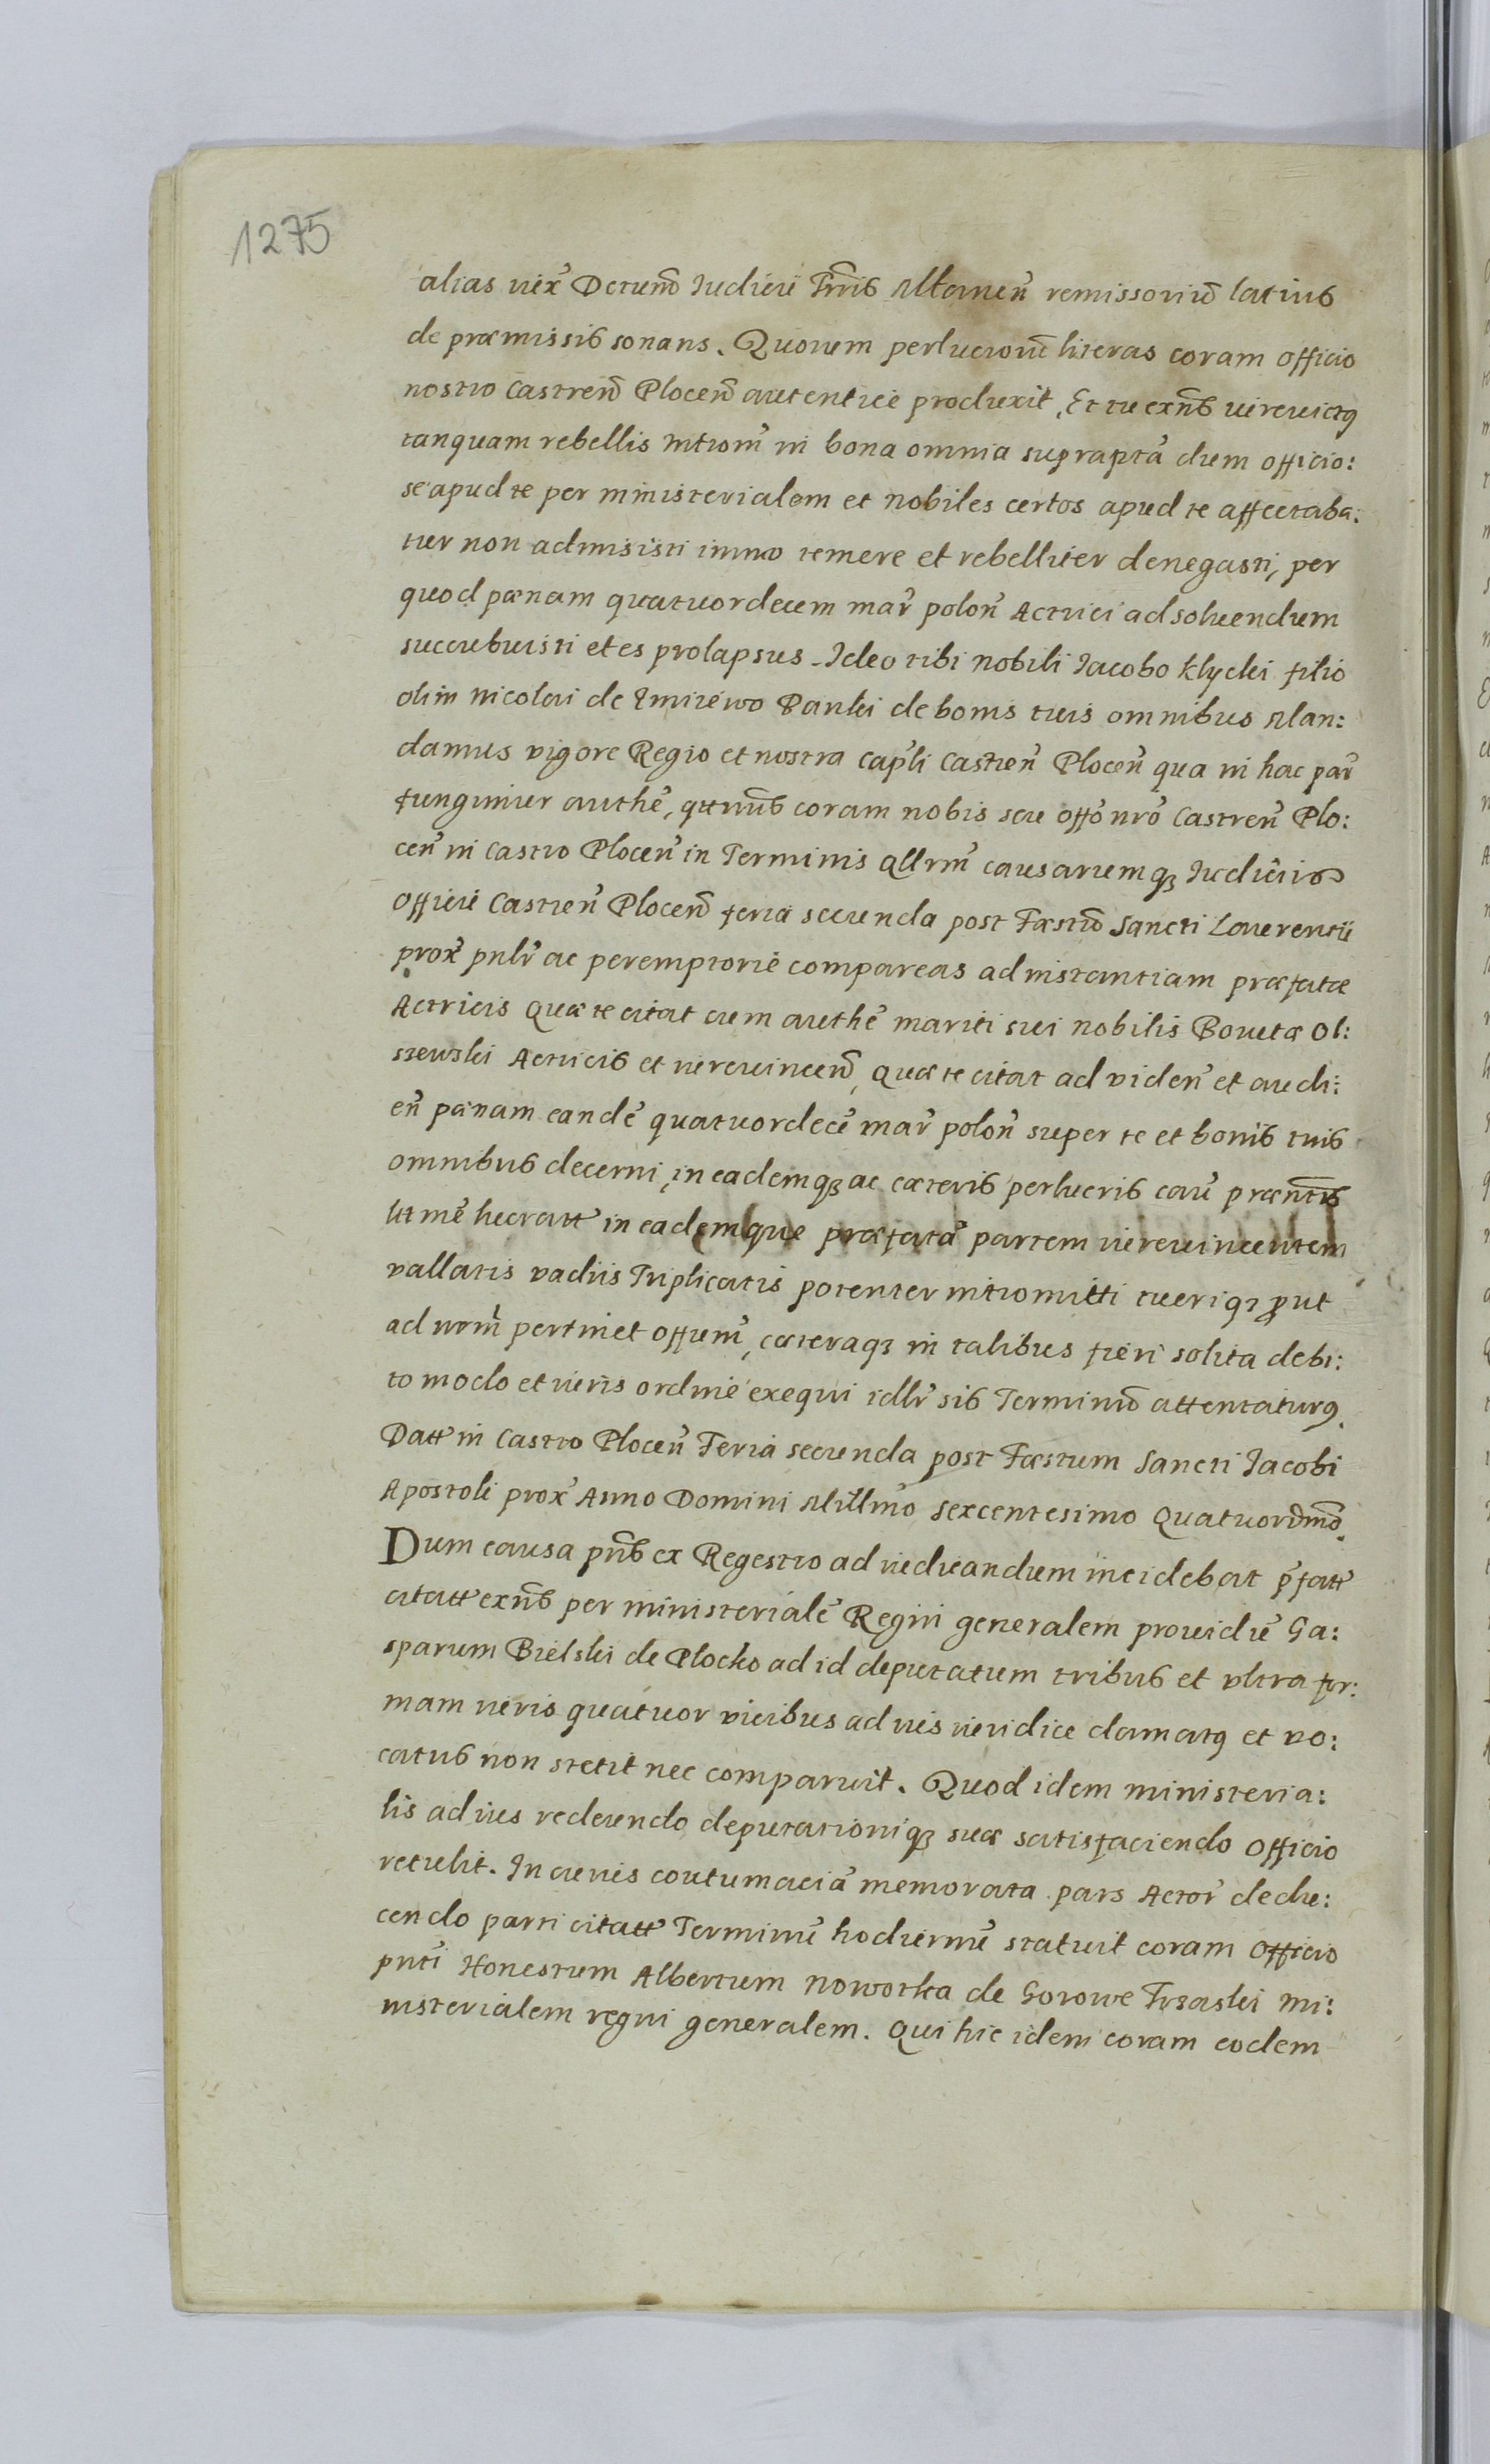 1275
alias iux̃ Decretũ Iudicii Trñis Mlameñ remissoriũ latius
de præmissis sonans. Quorum perlucrorũ literas coram officio
nostro Castreñ Ploceñ autentice produxit, Et tu exñs iureuictꝯ
tanquam rebellis Intromĩ in bona omnia supraptã dum officio:
se apud te per ministerialem et nobiles certos apud te affectaba:
tur non admisisti immo temere et rebelliter denegasti, per
quod pænam quatuordecem mar̃ poloñ Actrici ad soluendum
succubuisti et es prolapsus. Ideo tibi nobili Iacobo Klycki filio
olim Nicolai de Zmiiewo Panki de bonis tuis omnibus Man:
damus vigore Regio et nostra Cap̃li Castreñ Ploceñ qua in hac par̃
fungimur authẽ, qttnũs coram nobis seu offõ nrõ Castreñ Plo:
ceñ in Castro Ploceñ in Terminis qllrũ causarumqȝ Iudiciis
Officii Castreñ Ploceñ feria secunda post Fæstũ Sancti Laurentii
prox̃ pnlr̃ ac peremptorie compareas ad instantiam præfatæ
Actricis quæ te citat cum authẽ mariti sui nobilis Boutæ Ol:
szewski Actricis et iureuinceñ, quæ te citat ad videñ et audi:
eñ pænam eandẽ quatuordecẽ mar̃ poloñ super te et bonis tuis
omnibus decerni, in eademqȝ ac cæteris perlucris cau̇ præntis
utmẽ lucratt in eademque præfatã partem iureuincentem
vallatis vadiis Triplicatis potenter intromitti tueriqȝ put
ad nrm̃ pertinet offium̃, cæteraqȝ in talibus fieri solita debi:
to modo et iuris ordine exequi idlr̃ sis Terminũ attentaturꝯ.
Datt in Castro Ploceñ Feria secunda post Fæstum Sancti Iacobi
Apostoli prox̃ Anno Domini Millm̃o sexcentesimo Quatuordm̃o.
Dum causa pñs ex Regestro ad iudicandum incidebat p̃fatt
citatt exñs per ministerialẽ Regni generalem prouidũ Ga:
sparum Bielski de Plocko ad id deputatum tribus et vltra for:
mam iuris quatuor vicibus ad ius iuridice clamatꝯ et vo:
catus non stetit nec comparuit. Quod idem ministeria:
lis ad ius redeundo deputationiqȝ suæ satisfaciendo officio
retulit. In cuius contumaciã memorata pars Actor̃ dedu:
cendo parti citatt Terminũ hodiernũ statuit coram Officio
pnti Honestum Albertum Nowotka de Gorowe Trzaski mi:
nisterialem regni generalem. Qui hic idem coram eodem